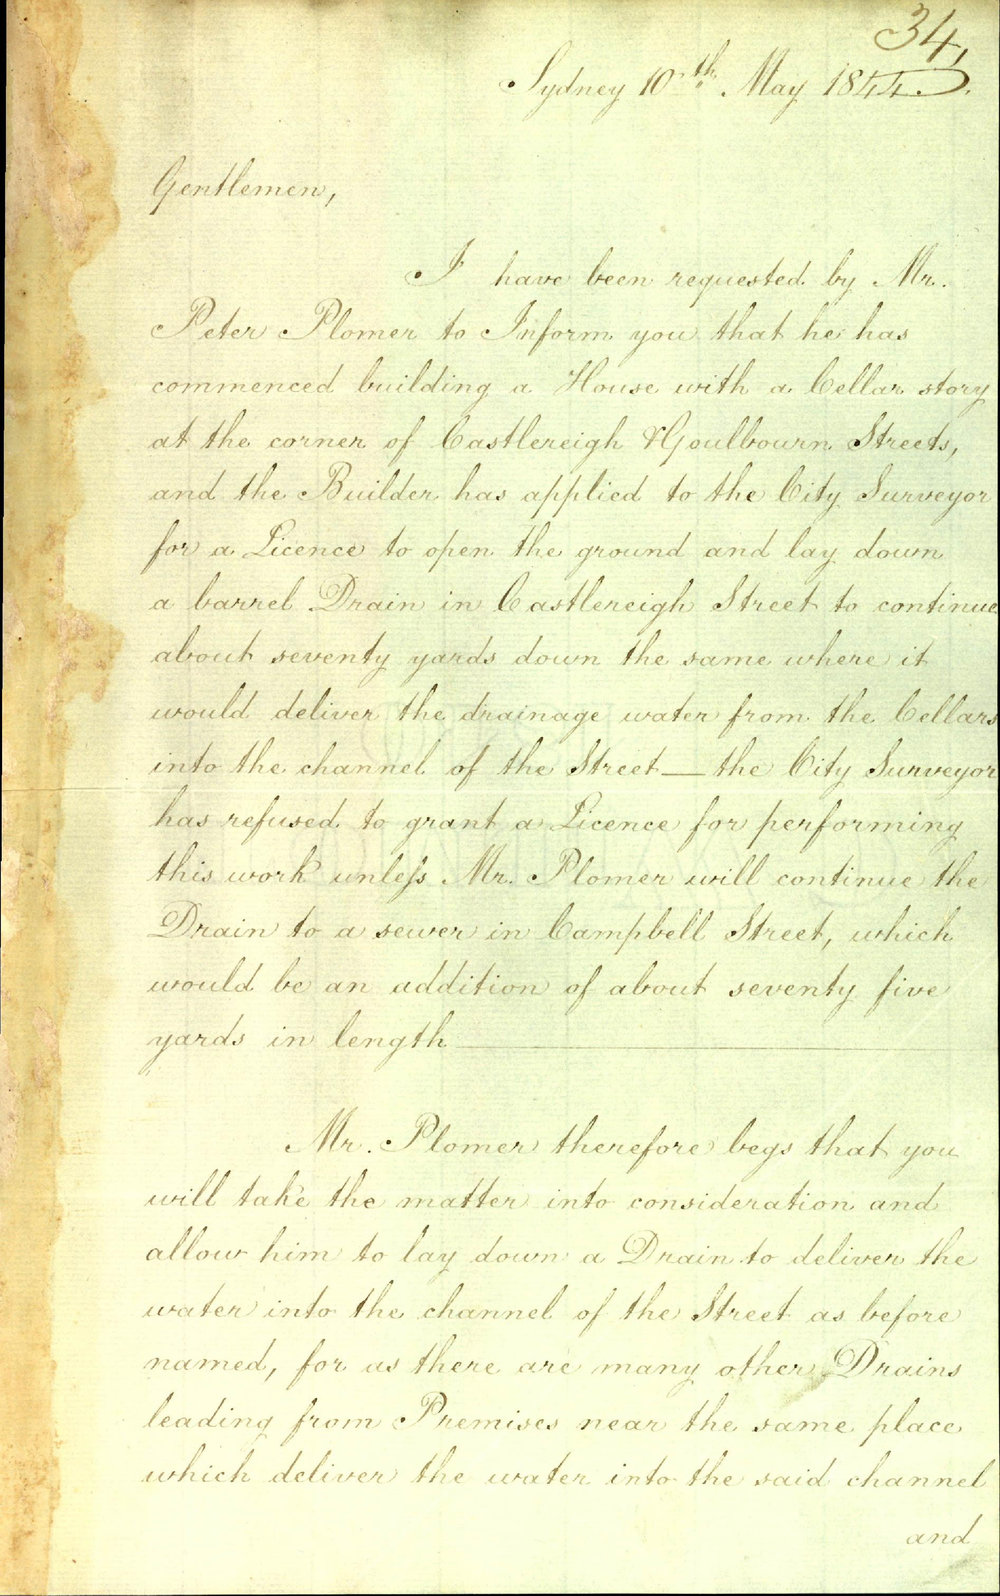 34,
Sydney 10th May 1844.
Gentlemen,
I have been requested by Mr.
Peter Plomer to Inform you that he has
commenced building a House with a Cellar story
at the corner of Castlereigh & Goulbourn Streets,
and the Builder has applied to the City Surveyor
for a Licence to open the ground and lay down
a barrel Drain in Castlereigh Street to continue
about seventy yards down the same where it
would deliver the drainage water from the Cellars
into the channel of the Street — the City Surveyor
has refused to grant a Licence for performing
this work unless Mr. Plomer will continue the
Drain to a sewer in Campbell Street, which
would be an addition of about seventy five
yards in length
Mr. Plomer therefore begs that you
will take the matter into consideration and
allow him to lay down a Drain to deliver the
water into the channel of the Street as before
named, for as there are many other Drains
leading from Premises near the same place
which deliver the water into the said channel
and